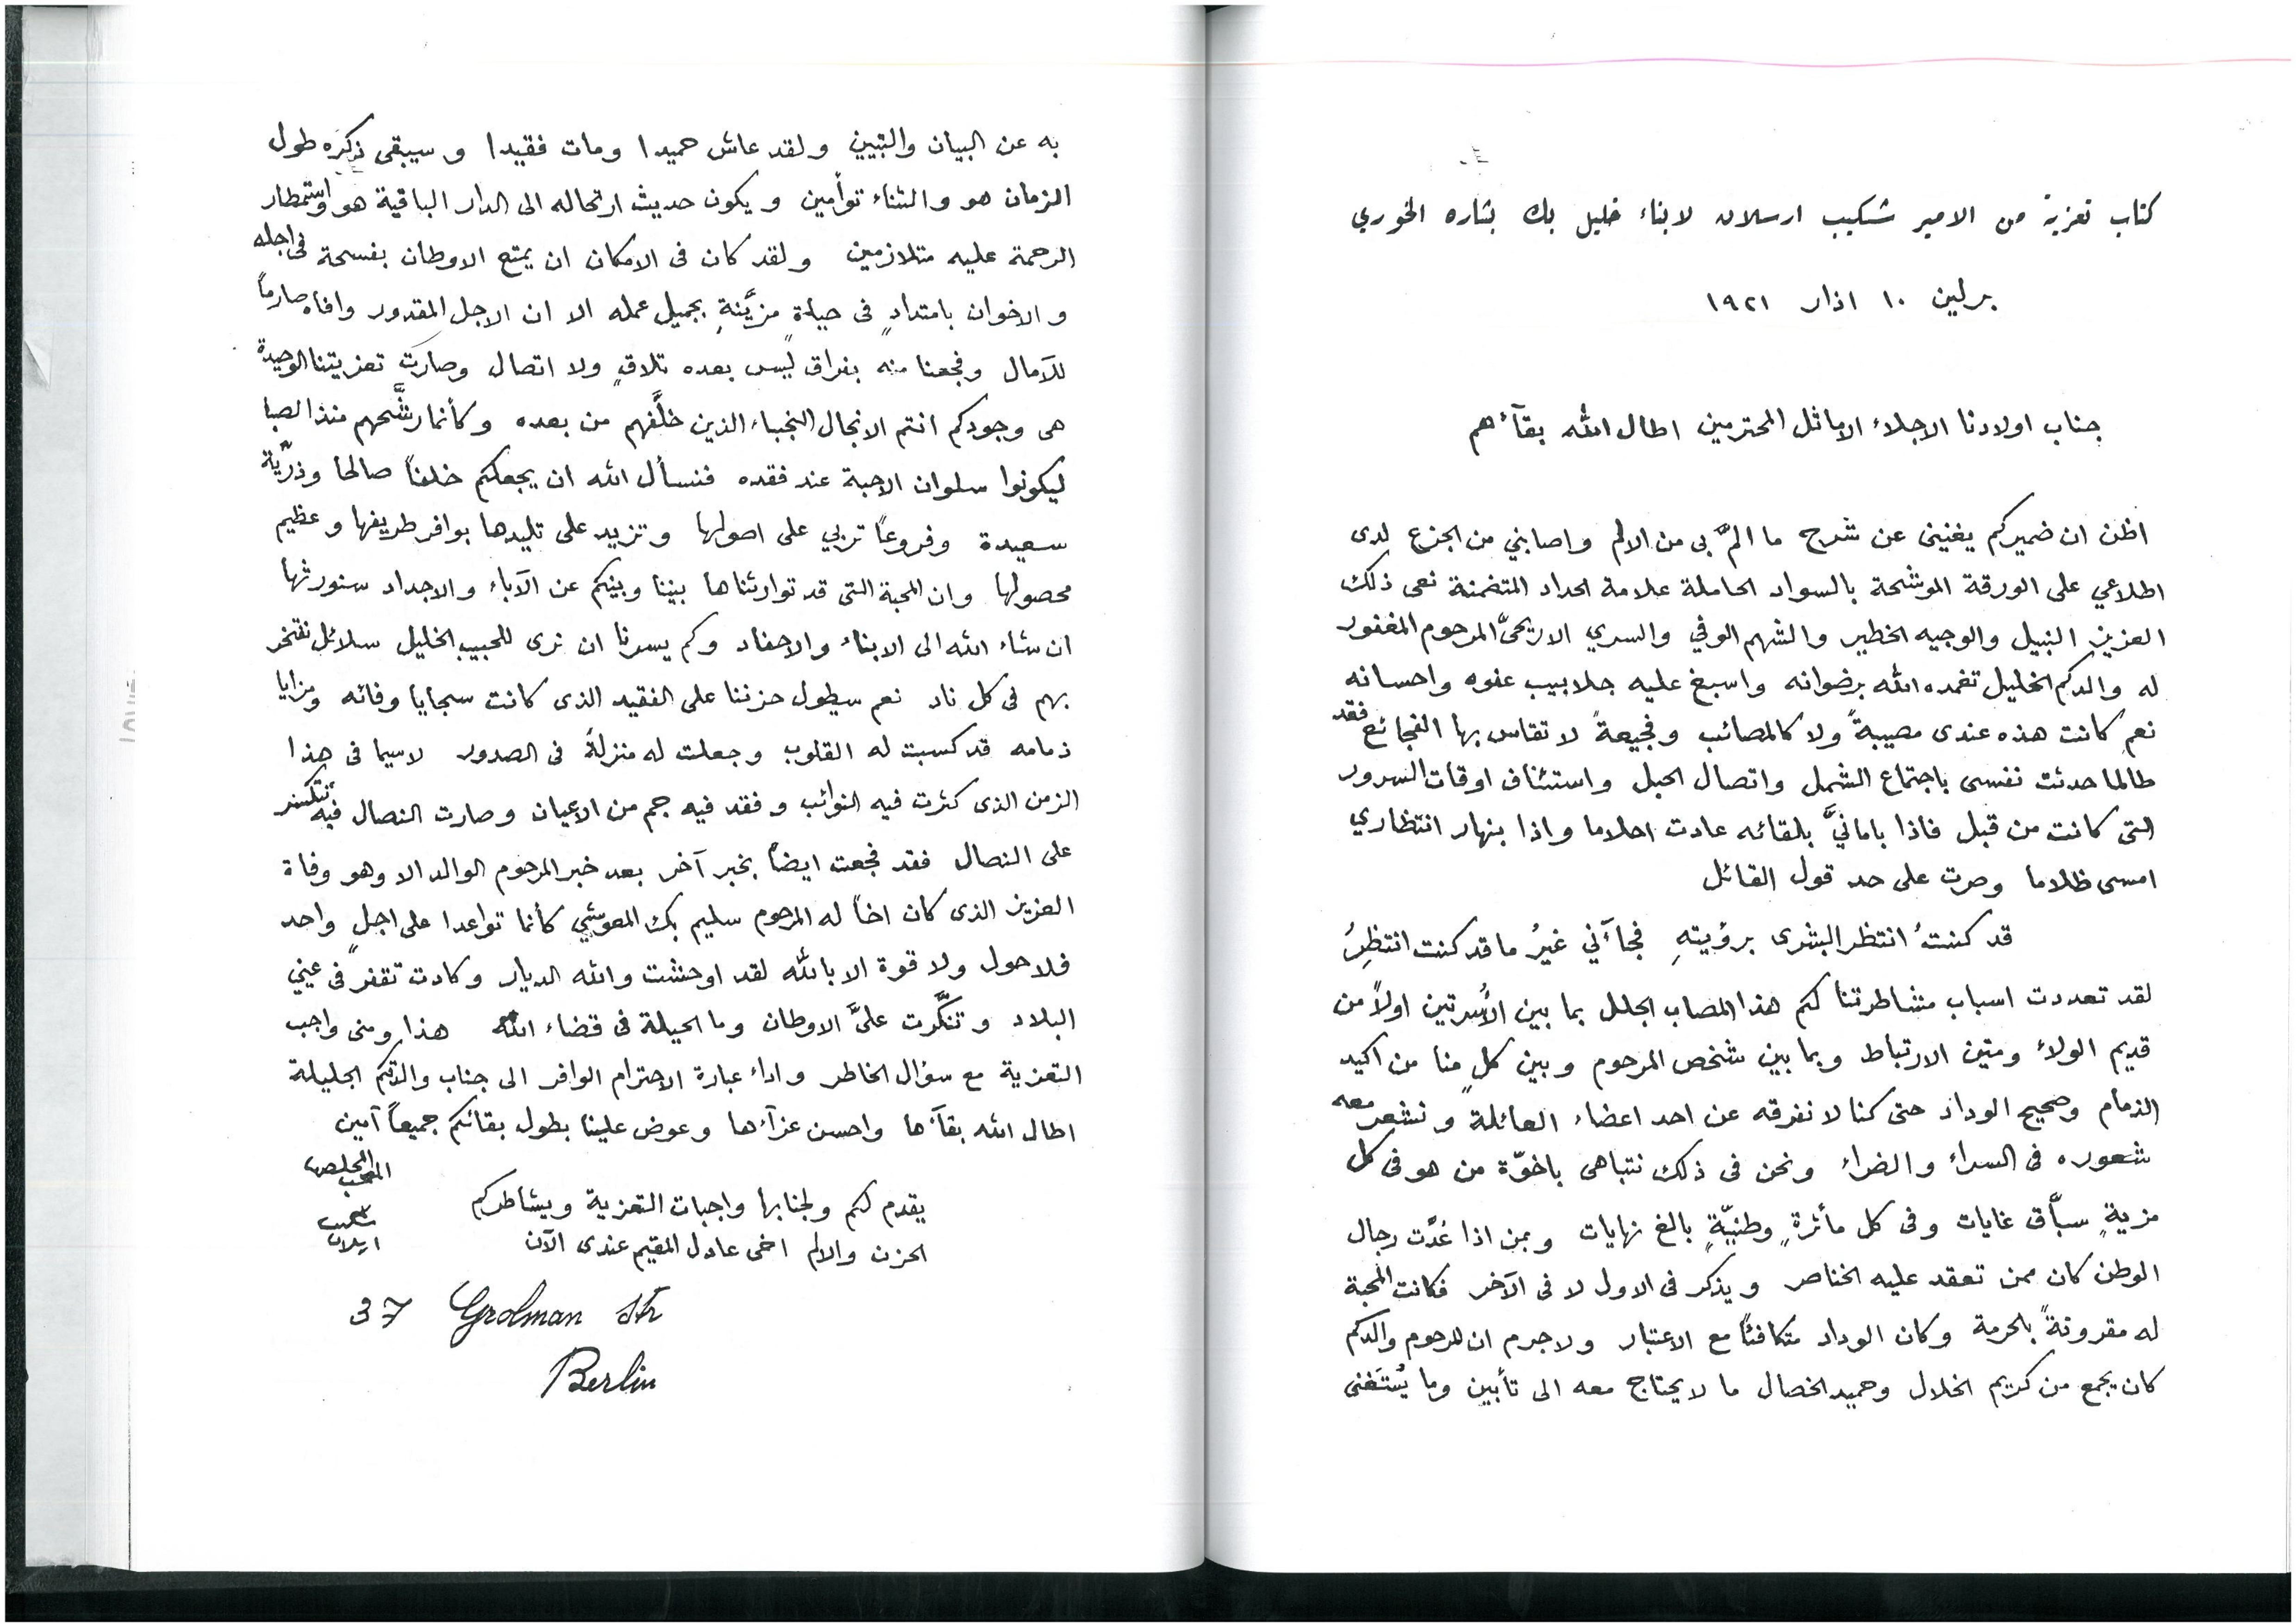 كتاب تعزية من الامير شكيب ارسلان لابناء خليل بك بشاره الخوري
برلين ١٠ اذار ١٩٢١
جناب اولادنا الاجلاء الاماثل المحترمين اطال الله بقآءهم
اظن ان ضميركم يغنينى عن شرح ما المّ بى من الالم واصابني من الجزع لدى
اطلاعي على الورقة الموشحة بالسواد الحاملة علامة الحداد المتضمنة نعى ذلك
العزيز النبيل والوجيه الخطير والشهم الوفي والسري الاريحىّ المرحوم المغفور
له والدكم الخليل تغمده الله برضوانه واسبغ عليه جلابيب عفوه واحسانه
نعم كانت هذه عندى مصيبةً ولا كالمصائب وفجيعةً لا تقاس بها الفجائع فقد
طالما حدثت نفسى باجتماع الشمل واتصال الحبل واستئناف اوقات السرور
التى كانت من قبل فاذا بامانيَّ بلقائه عادت احلاما واذا بنهار انتظاري
امسى ظلاما وصرت على حد قول القائل
قد كنتُ انتظر البشرى برؤيتهِ فجآءني غيرُ ما قد كنت انتظِرُ
لقد تعددت اسباب مشاطرتنا لكم هذا المصاب الجلل بما بين الأسرتين اولاً من
قديم الولاء ومتين الارتباط وبما بين شخص المرحوم وبين كلٍ منا من اكيد
الذمام وصحيح الوداد حتى كنا لا نفرقه عن احد اعضاء العائلة ونشعر معه
شعوره فى السراء والضراء ونحن فى ذلك نتباهى باخوّة من هو فى كل
مزيةٍ سبّاق غايات وفى كل مأثرةٍ وطنيّةٍ بالغ نهايات وبمن اذا عُدَّت رجال
الوطن كان ممن تعقد عليه الخناصر ويذكر فى الاول لا فى الآخر فكانت المحبة
له مقرونةً بالحرمة وكان الوداد متكافئاً مع الاعتبار ولا جرم ان المرحوم والدكم
كان يجمع من كريم الخلال وحميد الخصال ما لا يحتاج معه الى تأبين وما يُستَغنى
به عن البيان والتبيين ولقد عاش حميدا ومات فقيدا وسيبقى ذكره طول
الزمان هو والثناء توأمين ويكون حديث ارتحاله الى الدار الباقية هو واستمطار
الرحمة عليه متلازمين ولقد كان فى الامكان ان يمتع الاوطان بفسحة فى اجله
والاخوان بامتدادٍ فى حياةٍ مزيَّنةٍ بجميل عمله الا ان الاجل المقدور وافاه صارماً
للآمال وفجعنا منه بفراق ليس بعده تلاقٍ ولا اتصال وصارت تعزيتنا الوحيدة
هى وجودكم انتم الانجال النجباء الذين خلَّفهم من بعده وكأنما رشَّحهم منذ الصبا
ليكونوا سلوان الاحبة عند فقده فنسأل الله ان يجعلكم خلفاً صالحا وذرّية
سعيدة وفروعاً تربي على اصولها وتزيد على تليدها بوافر طريفها وعظيم
محصولها وان المحبة التى قد توارثناها بيننا وبينكم عن الآباء والاجداد سنورثها
ان شاء الله الى الابناء والاحفاد وكم يسرنا ان نرى للحبيب الخليل سلائل نفتخر
بهم فى كل ناد نعم سيطول حزننا على الفقيد الذى كانت سجايا وفائه ومزايا
ذمامه قد كسبت له القلوب وجعلت له منزلةً فى الصدور لاسيما فى هذا
الزمن الذى كثرت فيه النوائب وفقد فيه جم من الاعيان وصارت النصال فيه تتكسر
على النصال فقد فجعت ايضاً بخبر آخر بعد خبر المرحوم الوالد الا وهو وفاة
العزيز الذى كان اخاً له المرحوم سليم بك المعوشي كأنما تواعدا على اجلٍ واحد
فلا حول ولا قوة الا بالله لقد اوحشت والله الديار وكادت تقفر فى عيني
البلاد وتنكّرت علىَّ الاوطان وما الحيلة فى قضاء الله هذا ومنى واجب
التعزية مع سؤال الخاطر واداء عبارة الاحترام الوافر الى جناب والدتكم الجليلة
اطال الله بقآءها واحسن عزآءها وعوض علينا بطول بقائكم جميعاً آمين
المحب المخلص
شكيب
ارسلان
يقدم لكم ولجنابها واجبات التعزية ويشاطركم
الحزن والالم اخى عادل المقيم عندى الآن
37 Grolman Str
Berlin